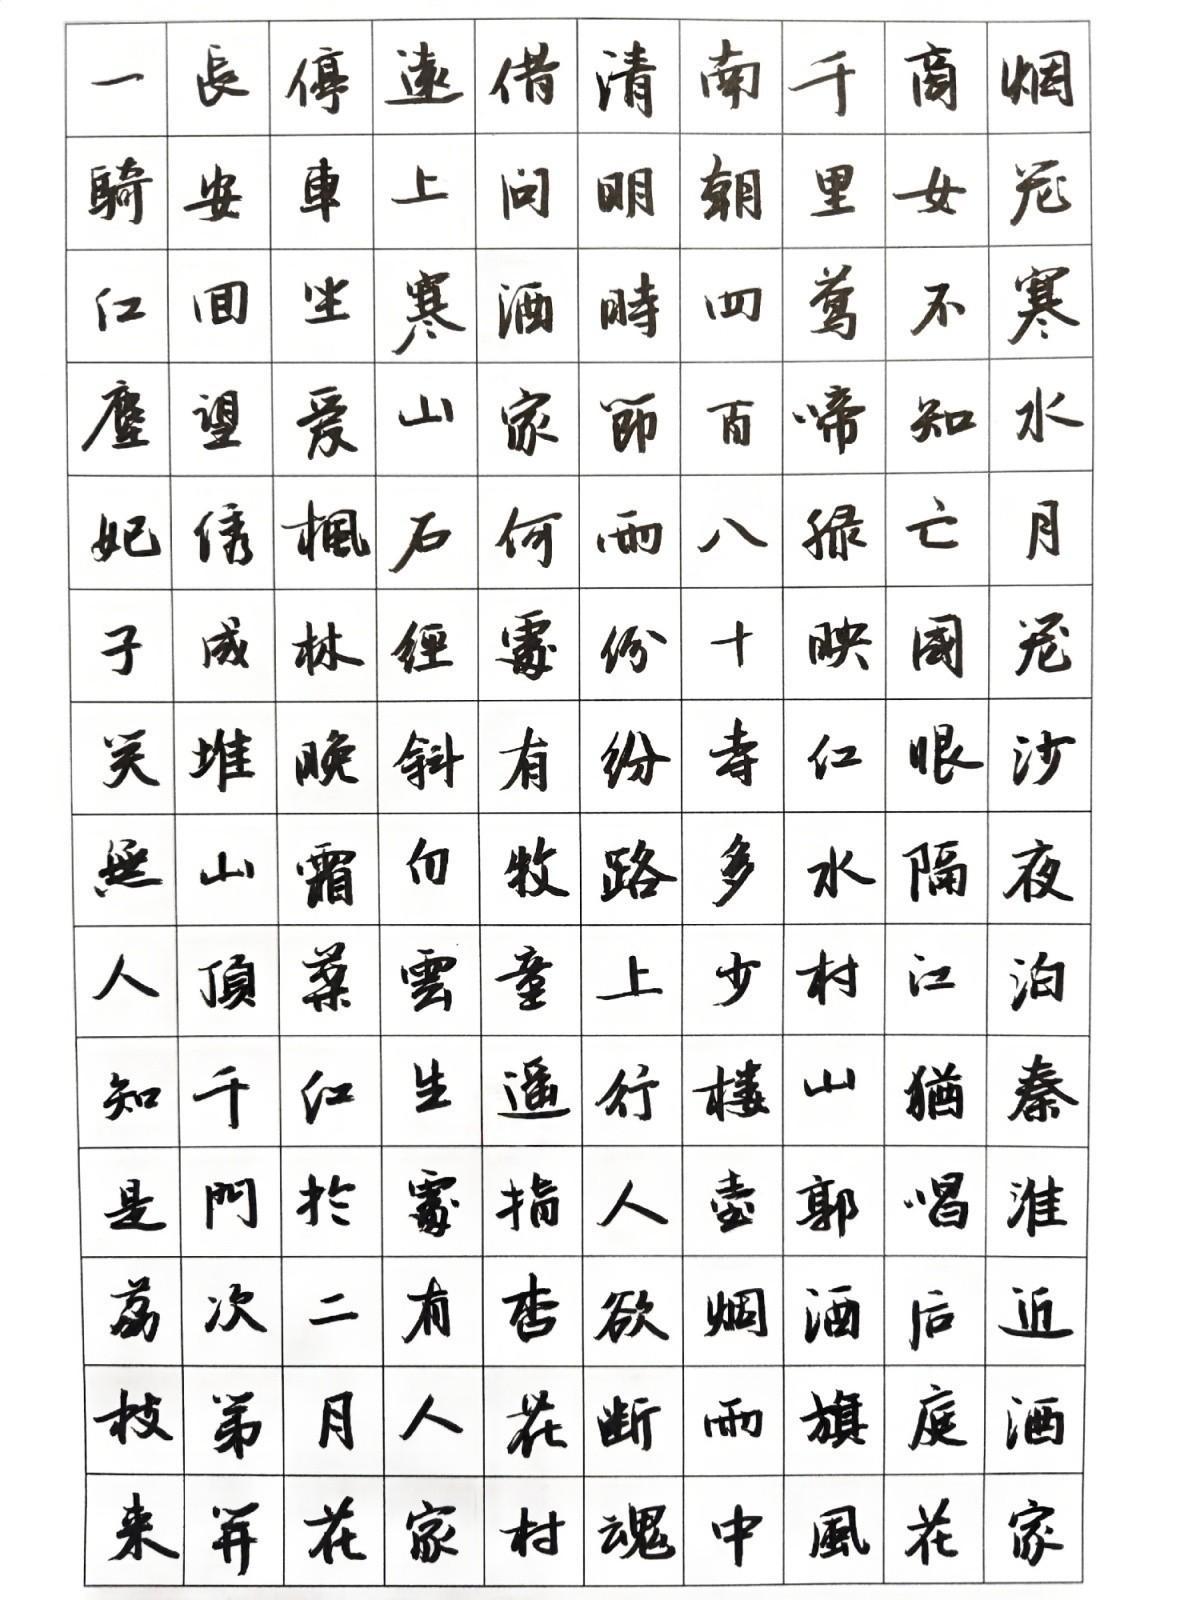 烟笼寒水月笼沙夜泊秦淮近酒家
商女不知亡國眼隔江猶唱后庭花
千里莺啼绿映红水村山郭酒旗風
南朝四百八十寺多少楼臺烟雨中
清明時節雨份纷路上行人欲断魂
借问酒家何處有牧童遥指杏花村
遠上寒山石經斜白雲生處有人家
停車坐爱楓林晚霜葉红於二月花
長安回望绣成堆山頂千門次第開
一騎红塵妃子笑無人知是荔枝来